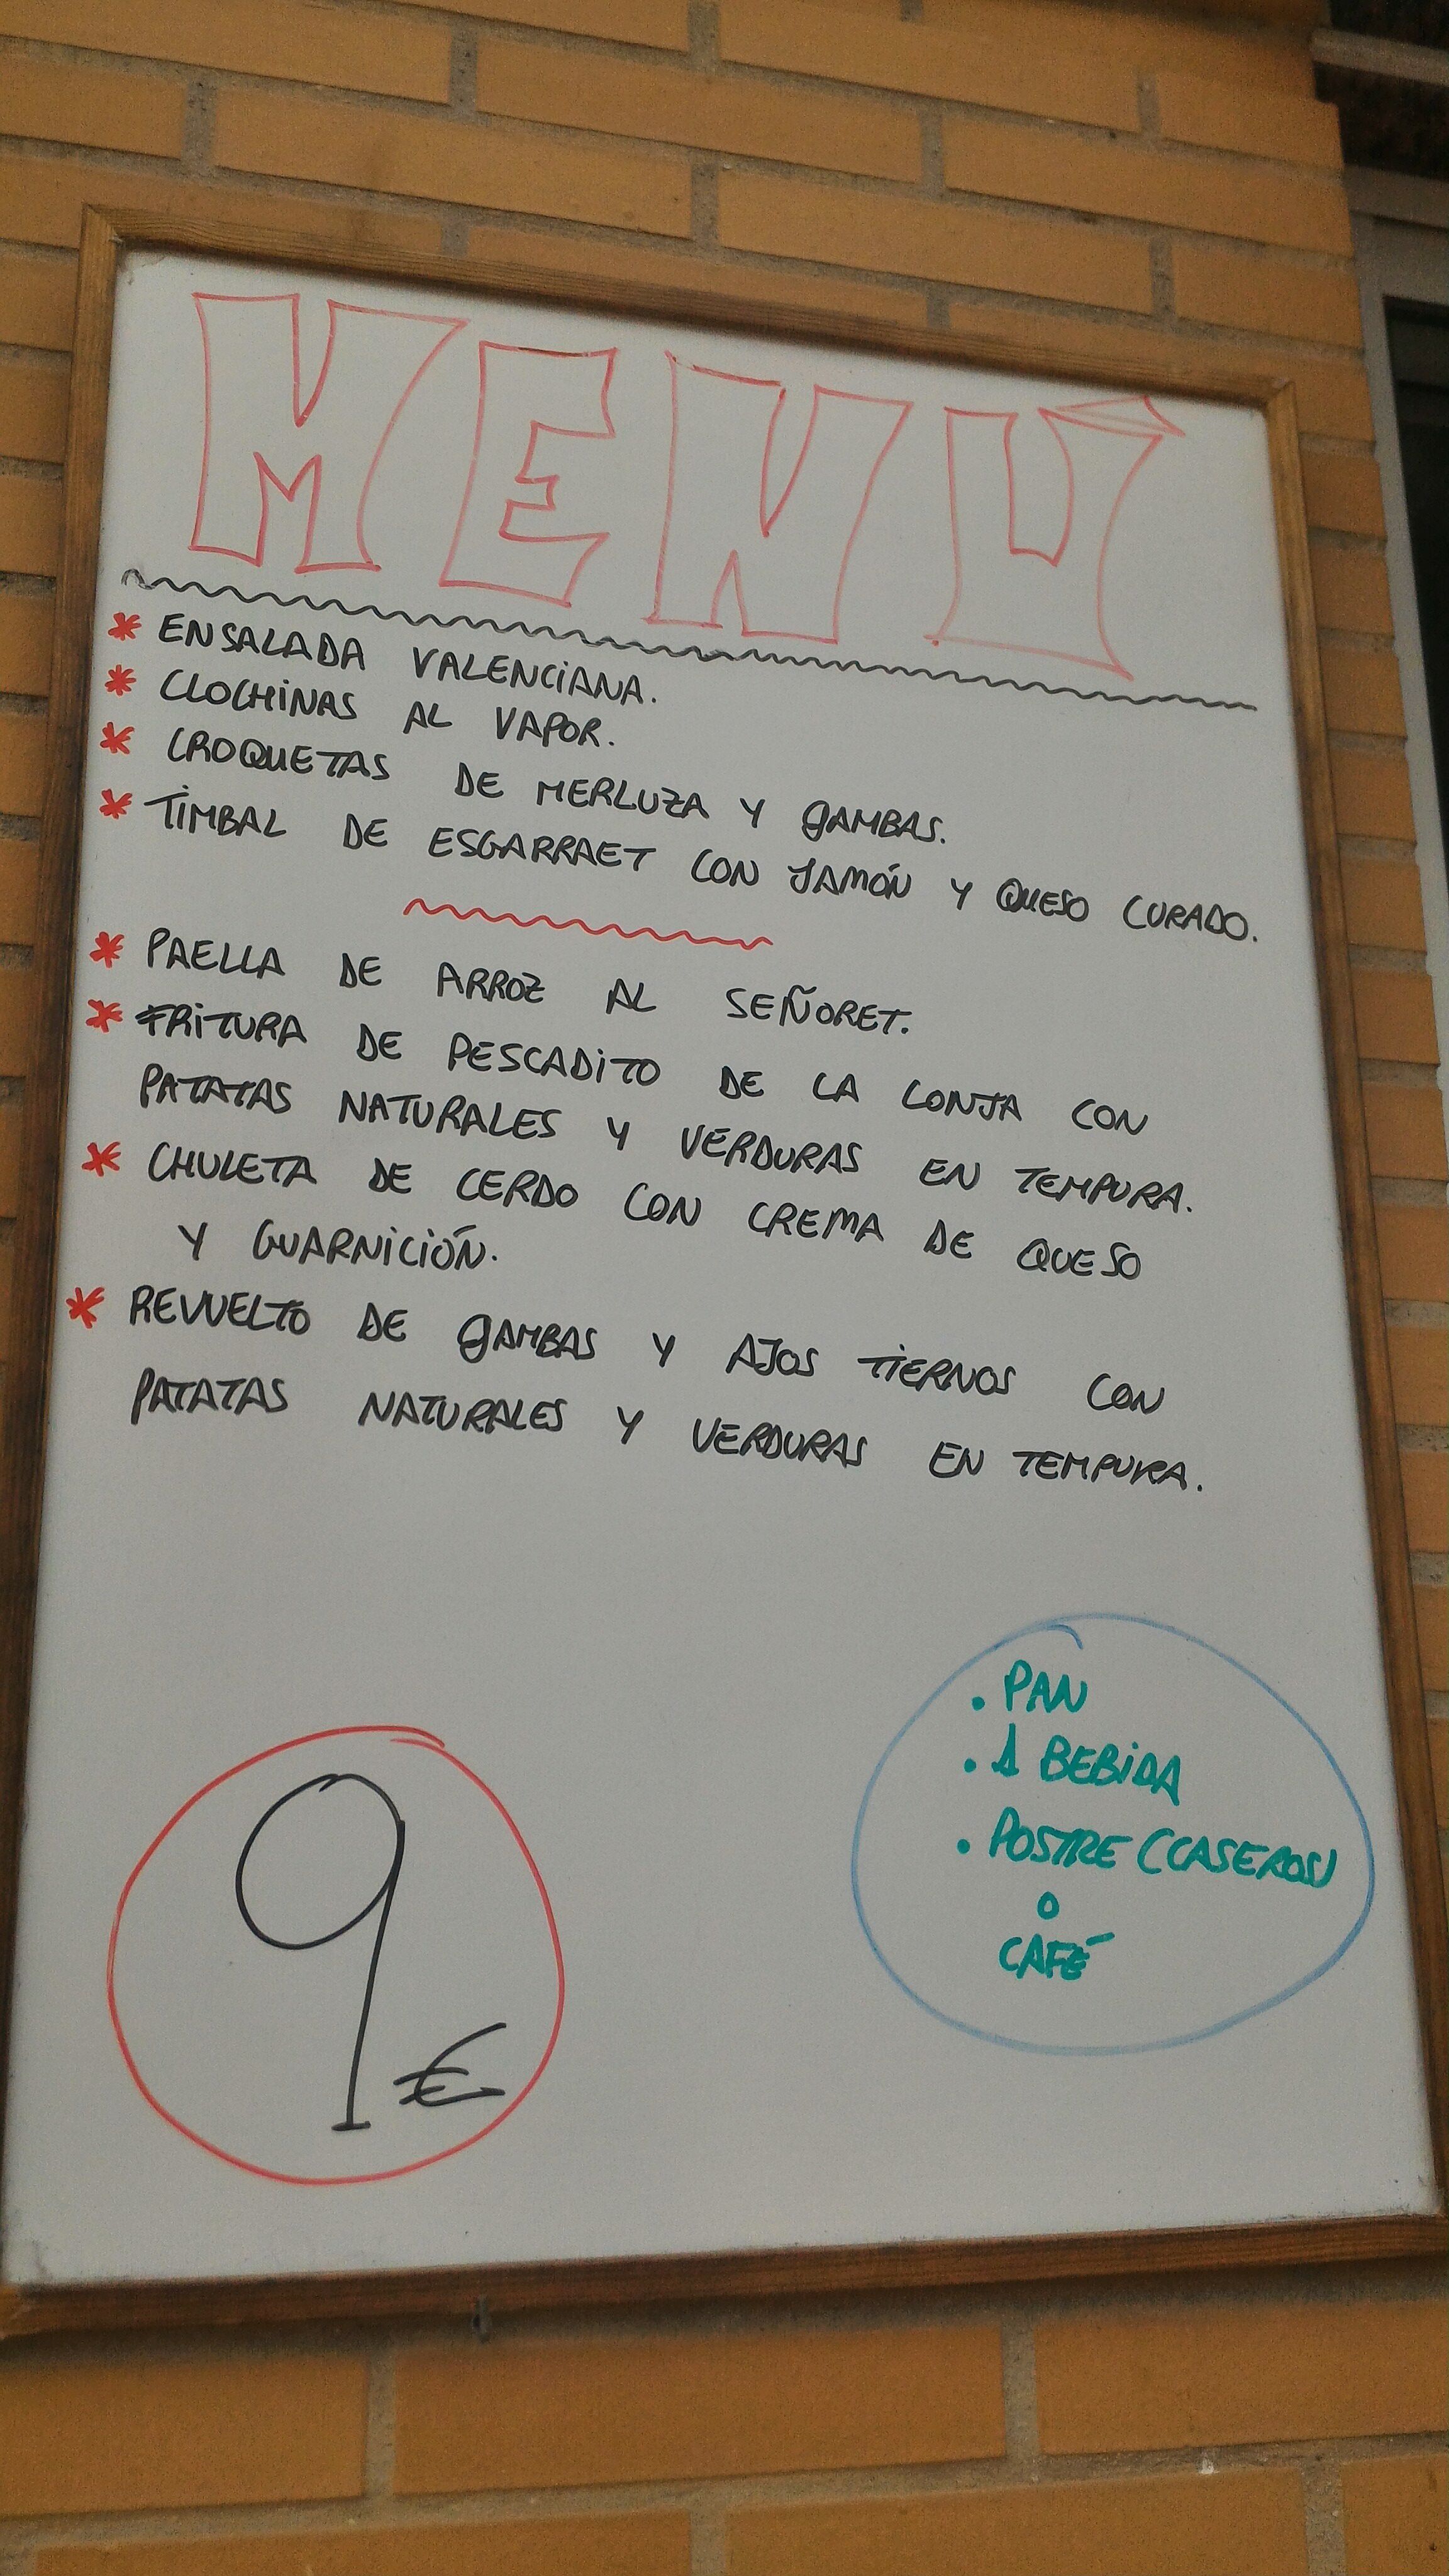 MENÚ
* ENSALADA VALENCIANA.
* CLOCHINAS AL VAPOR.
* CROQUETAS DE MERLUZA Y GAMBAS.
* TIMBAL DE ESGARRAET CON JAMÓN Y QUESO CURADO.
* PAELLA DE ARROZ AL SEÑORET.
* FRITURA DE PESCADITO DE LA LONJA CON
PATATAS NATURALES Y VERDURAS EN TEMPURA.
* CHULETA DE CERDO CON CREMA DE QUESO
Y GUARNICIÓN.
* REVUELTO DE GAMBAS Y AJOS TIERNOS CON
PATATAS NATURALES Y VERDURAS EN TEMPURA.
. PAN
. 1 BEBIDA
. POSTRE (CASEROS)
O
CAFÉ
9 €